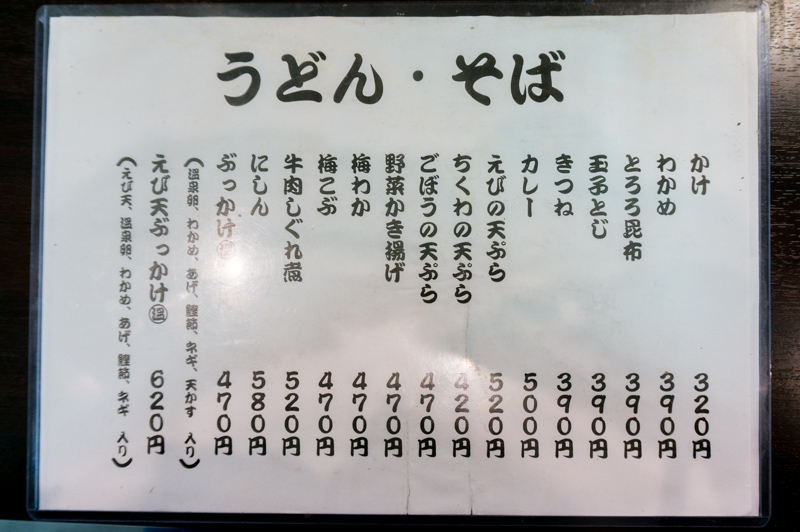 うどん・そば
かけ 320円
わかめ 390円
とろろ昆布 390円
玉子とじ 390円
きつね 390円
カレー 500円
えびの天ぷら 520円
ちくわの天ぷら 420円
ごぼうの天ぷら 470円
野菜かき揚げ 470円
梅わか 470円
梅こぶ 470円
牛肉しぐれ煮 520円
にしん 580円
ぶっかけ㊔ 470円
(温泉卵、わかめ、あげ、鰹節、ネギ、天かす 入り)
えび天ぶっかけ温 620円
(えび天、温泉卵、わかめ、あげ、鰹節、ネギ 入り)